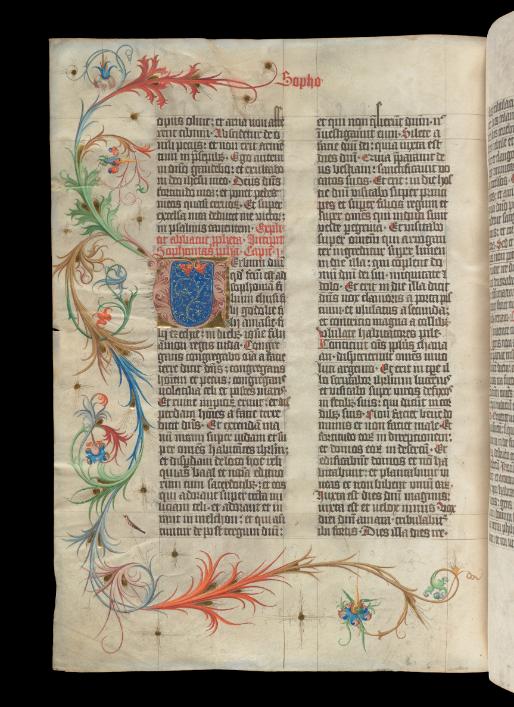 Sopho
opus oliue: et arua non affe
rent cibum. Abscidetur de o
uili pecus: et non erit armē
tum in presepibus. Ego autem
in dño gaudebo: et exultabo
in deo ihesu meo. Deus dñs
fortitudo mea: et ponet pedes
meos quasi ceruor. Et super
excelsa mea deducet me victor:
in psalmis canentem. Expli
cit abbacuc ppheta. Incipit
Sophonias ppha. Capit. i.
erbum dñi
qd factū est ad
sophoniā fi
lium chusi fi
lij godolie fi
lij amasie fi
lij ezechie: in diebz iosie filij
amon regis iuda. Congre
gans congregabo oīa a facie
terre dicit dñs: congregans
hoīem et pecus: congregans
volatilia celi et pisces maris.
Et ruine impiorū erunt: et dis
perdam hoīes a facie terre
dicit dñs. Et extendā ma
nū meam super iudam et su
per omēs habitātes ihrlm:
et disperdam de loco hoc reli
quias baal et noīa edituo
rum cum sacerdotibz: et eos
qui adorant super tecta mi
liciam celi: et adorant et iu
rant in melchon: et qui auer
tuntur de post tergum dñi:
et qui non quesierūt dñm: n
inuestigauerūt eum. Silete a
facie dñi dei: quia iuxta est
dies dñi. Quia parauit dñs
hostiam: sanctificauit vo
catos suos. Et erit: in die hos
tie dñi visitabo super princi
pes et super filios regum et
super omēs qui induti sunt
veste peregrina. Et visitabo
super omnem qui arrogant
ter ingreditur super limen
in die illa: qui complent do
mū dñi dei sui iniquitate et
dolo. Et erit in die illa dicit
dñs vox clamoris a porta pis
cium: et ululatus a secunda:
et contricio magna a collibz.
Ululate habitatores pile.
Conticuit oīs pplus chana
an: disperierunt omēs inuo
luti argento. Et erit in tpe il
lo scrutabor ihrlm in lucernis:
et visitabo super viros defixos
in fecibz suis: qui dicūt in cor
dibz suis. Non faciet bene do
minus et non faciet male. Et
erit fortitudo eorum in direptionem:
et domus eorum in desertū. Et
edificabunt domos et nō ha
bitabunt: et plantabunt vi
neas et non bibent vinū earum.
Iuxta est dies dñi magnus:
iuxta est et velox nimis. Vox
diei dñi amara: tribulabitur
ibi fortis. Dies illa dies ire